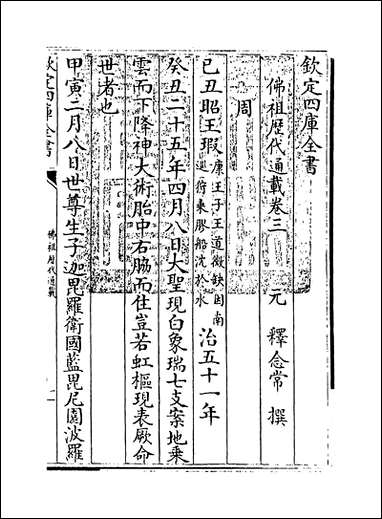 欽定四庫全書
佛祖歴代通載卷三
元 釋念常 撰
周
己丑昭王瑕康王子王道微缺因南廵狩乗膠船沈於水 治五十一年
癸丑二十五年四月八日大聖現白象瑞七支案地乗
雲而下降神大術胎中右脇而住豈若虹樞現表厥命
世者也
甲寅二月八日世尊生于迦毘羅衛國藍毘尼園波羅
欽定四庫全書
佛祖歴代通載